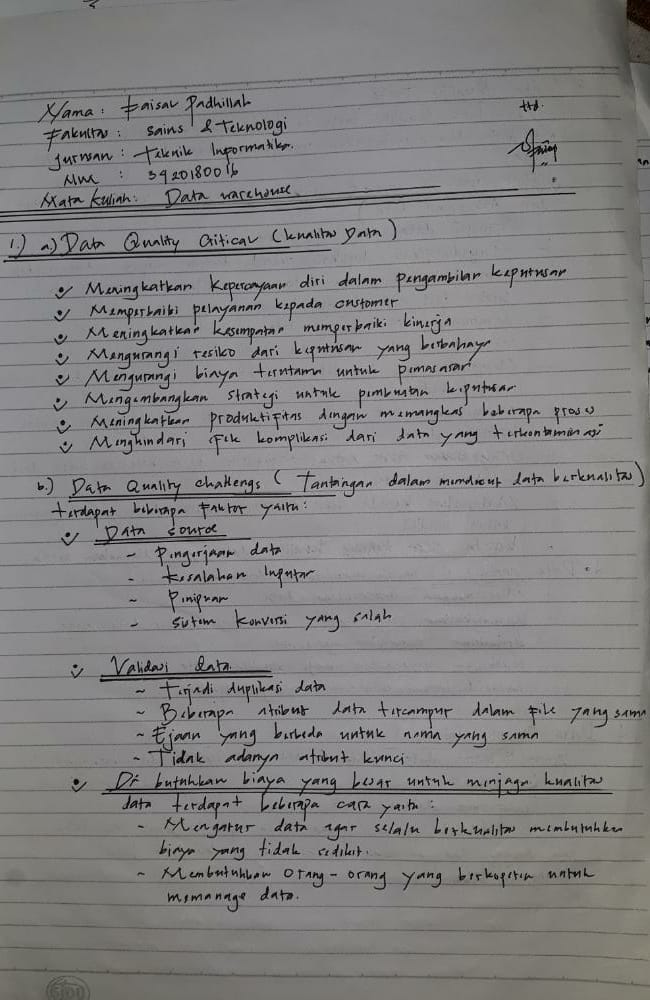 Nama : Faisal Padhillah
ttd.
Fakultas : Sains & Teknologi
Jurusan : Teknik Informatika.
NIM : 3920180016
Mata kuliah : Data warehouse
1.) a) Data Quality Critical (kualitas Data)
Meningkatkan Kepercayaan diri dalam pengambilan keputusan
Memperbaiki pelayanan kepada customer
Meningkatkan kesempatan memperbaiki kinerja
Mengurangi resiko dari keputusan yang berbahaya
Mengurangi biaya terutama untuk pemasaran
Mengembangkan strategi untuk pembuatan keputusan
Meningkatkan produktifitas dengan memangkas beberapa proses
Menghindari efek komplikasi dari data yang terkontaminasi
b.) Data Quality challengs (Tantangan dalam data berkualitas)
terdapat beberapa Faktor yaitu :
Data source
- Pengerjaan data
- Kesalahan Inputan
- Penipuan
- Sistem konversi yang salah
Validasi data
- Terjadi duplikasi data
- Beberapa atribut data tercampur dalam file yang sama
- Ejaan yang berbeda untuk nama yang sama
- Tidak adanya atribut kunci
Di butuhkan biaya yang besar untuk menjaga kualitas
data terdapat beberapa cara yaitu :
- Mengatur data agar selalu berkualitas membutuhkan
biaya yang tidak sedikit.
- Membutuhkan orang-orang yang berkopeten untuk
memanage data.